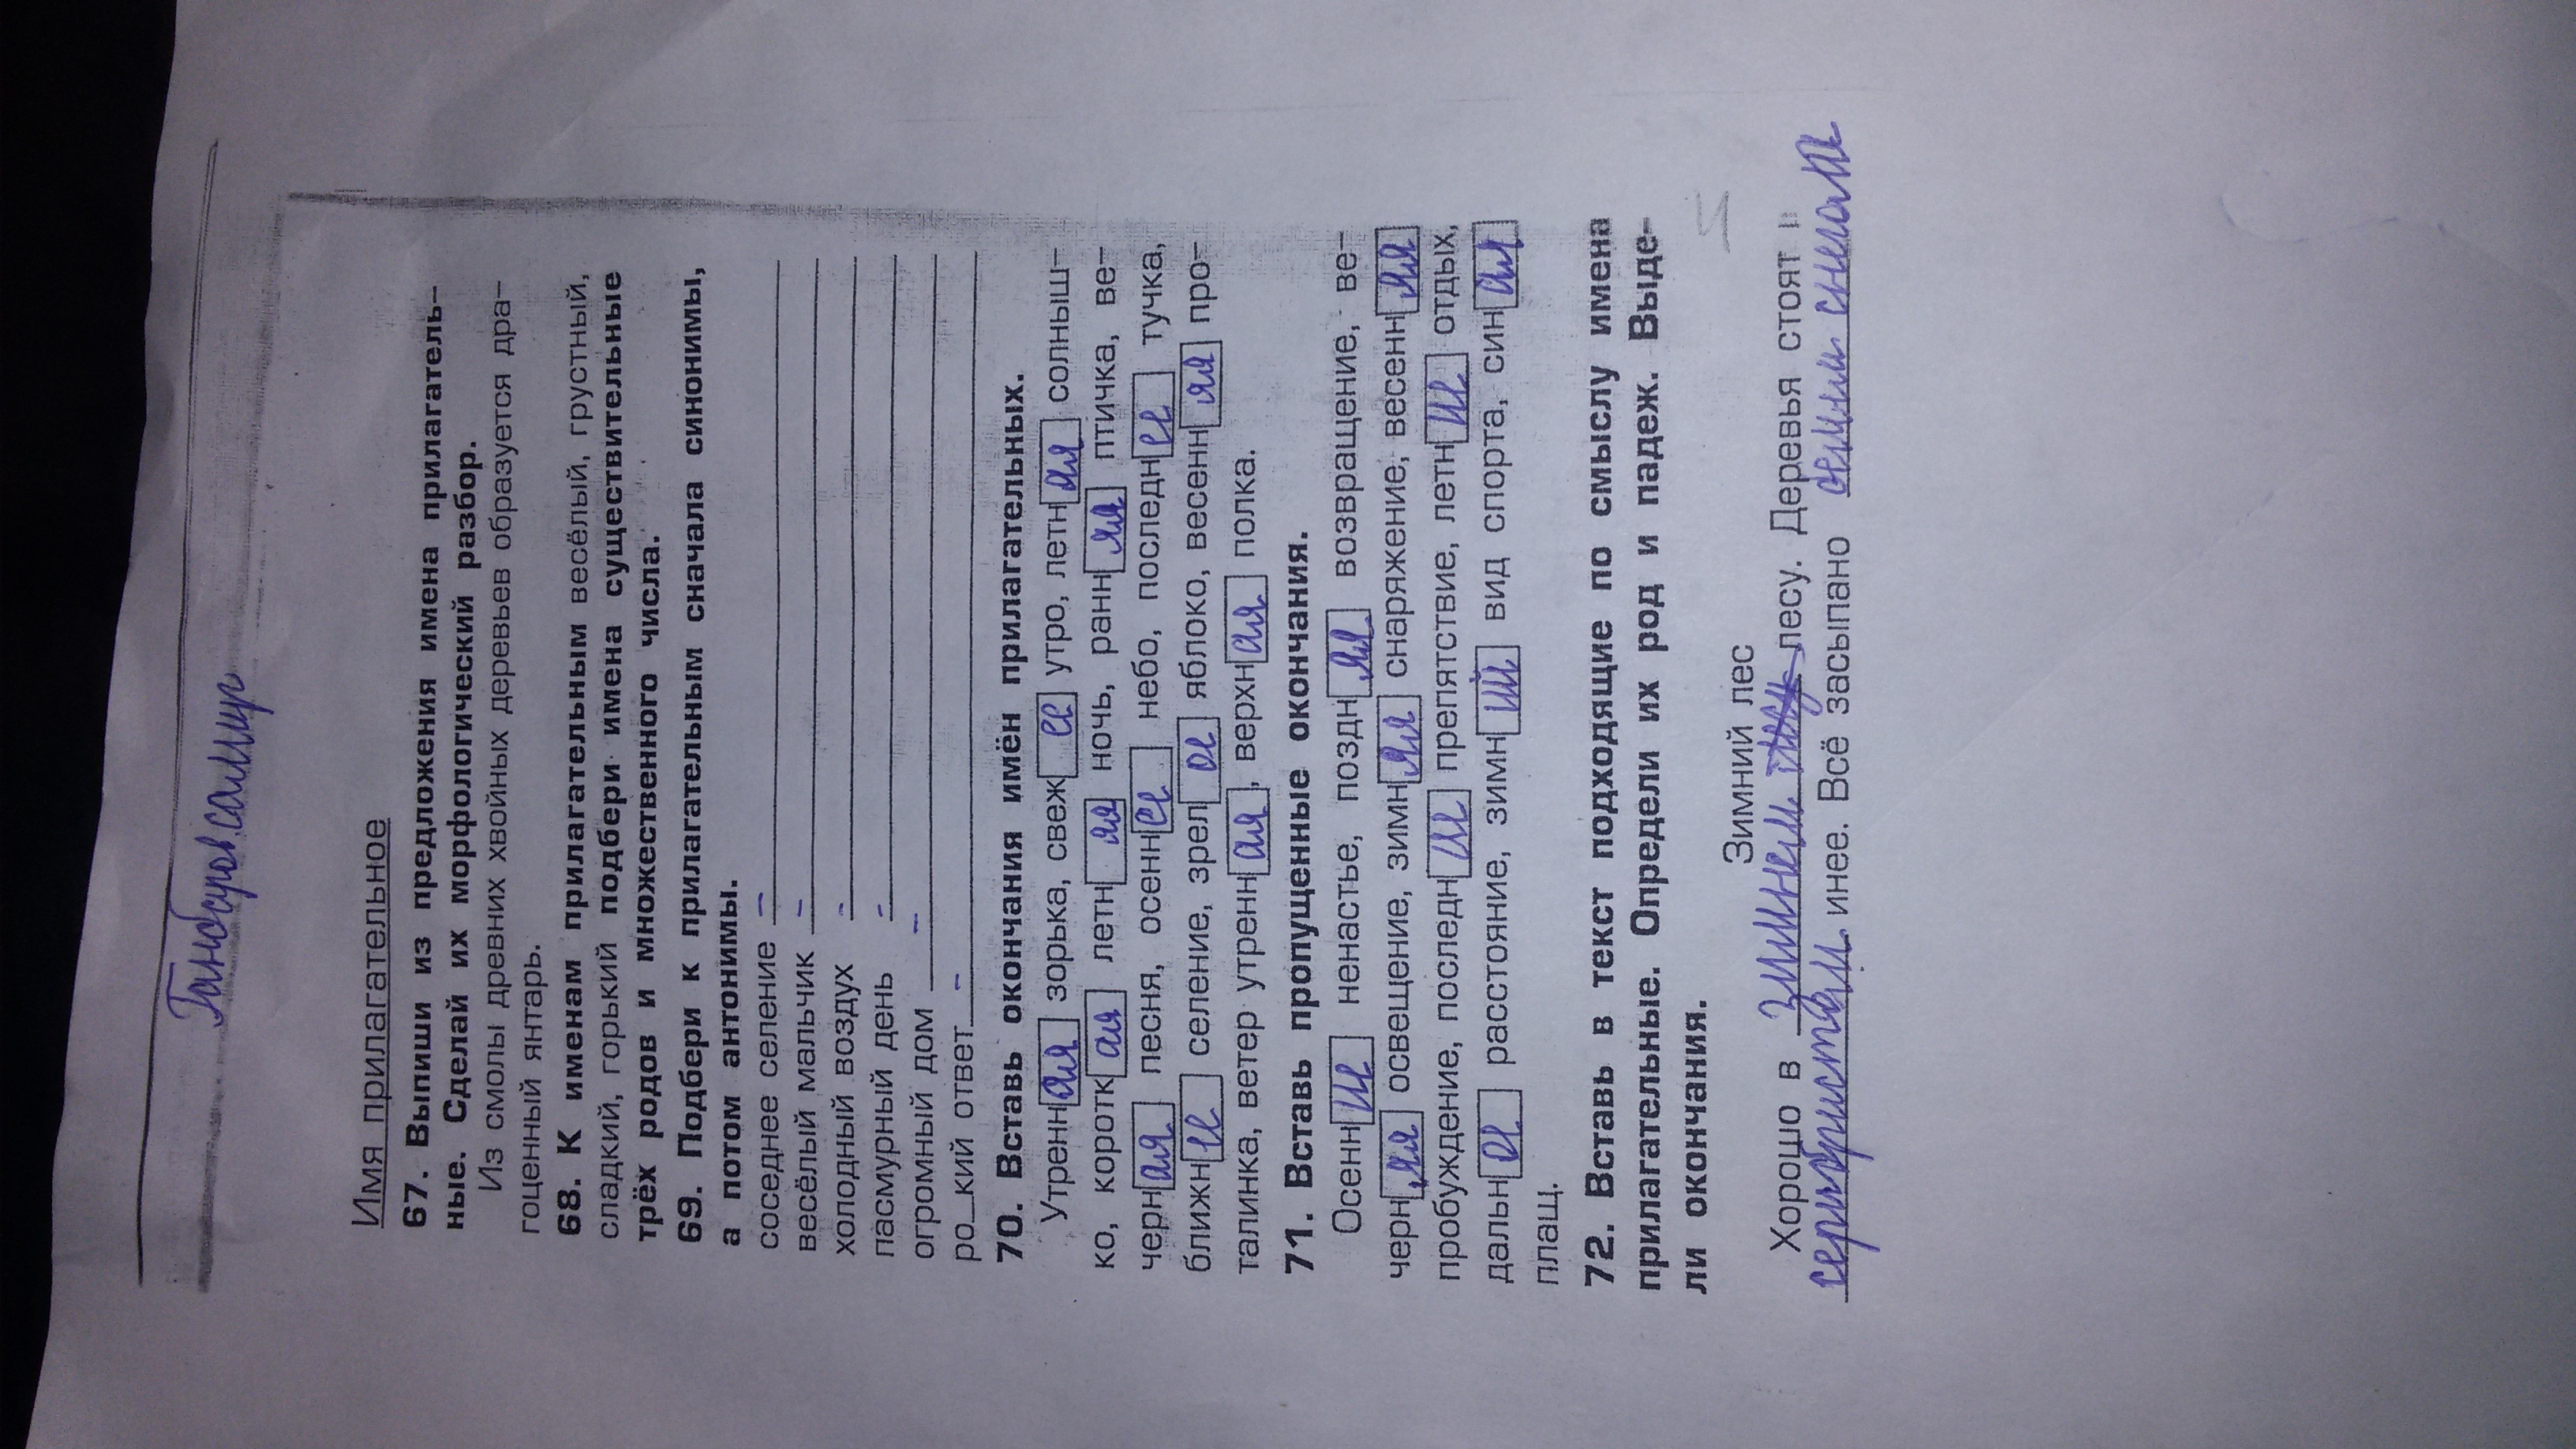 Ганбаров Самир
Имя прилагательное
67. Выпиши из предложения имена прилагатель-
ные. Сделай их морфологический разбор.
Из смолы древних хвойных деревьев образуется дра-
гоценный янтарь.
68. К именам прилагательным весёлый, грустный,
сладкий, горький подбери имена существительные
трёх родов и множественного числа.
69. Подбери к прилагательным сначала синонимы,
а потом антонимы.
соседнее селение –
весёлый мальчик –
холодный воздух –
пасмурный день –
огромный дом –
ро_кий ответ –
70. Вставь окончания имён прилагательных.
Утренн ая зорька, свеж ее утро, летн ая солныш-
ко, коротк ая летн яя ночь, ранн яя птичка, ве-
черн ая песня, осенн ее небо, последн ее тучка,
ближн ее селение, зрел ое яблоко, весенн яя про-
талинка, ветер утренн ая, верхн ая полка.
71. Вставь пропущенные окончания.
Осенн ие ненастье, поздн яя возвращение, ве-
черн яя освещение, зимн яя снаряжение, весенн яя
пробуждение, последн ие препятствие, летн ие отдых,
дальн ое расстояние, зимн ий вид спорта, син ая
плащ.
72. Вставь в текст подходящие по смыслу имена
прилагательные. Определи их род и падеж. Выде-
ли окончания.
Зимний лес
Хорошо в зимнем лесу. Деревья стоят в
инее. Всё засыпано